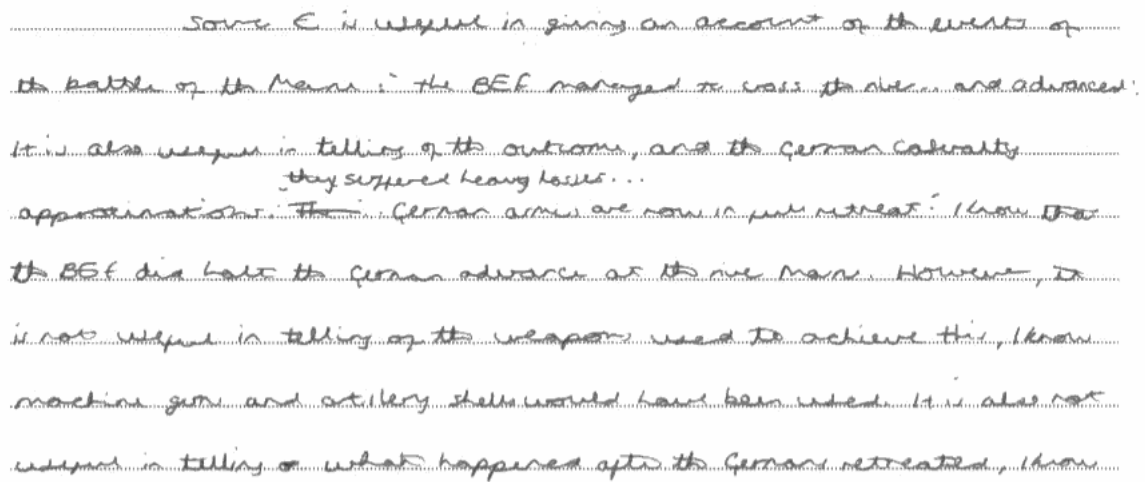 Source E is useful in giving an account of the events of
the battle of the Marne: "the BEF managed to cross the river... and advanced."
It is also useful in telling of the outcome, and the German casualty
they suffered heavy losses...
approximations. German armies are now in full retreat." I know
the BEF did halt the German advance at the river Marne. However, it
is not useful in telling of the weapons used to achieve this, I know
machine guns and artillery shells would have been used. It is also not
useful in telling of what happened after the Germans retreated, I know